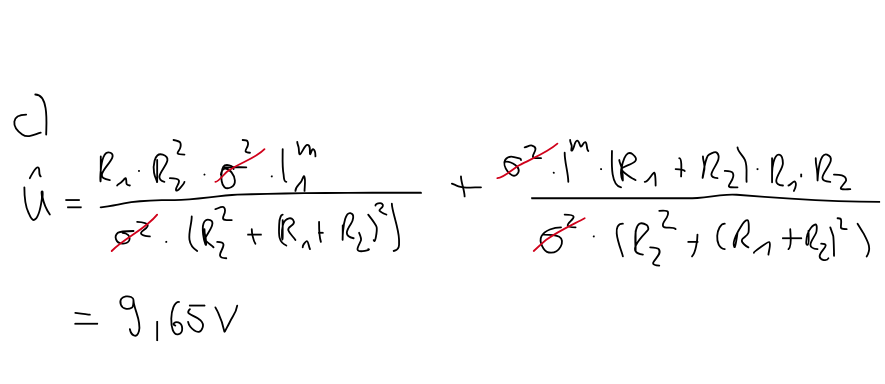 c)
û = R₁ · R₂² · σ² · I₁ᵐ / σ² · (R₂² + (R₁ + R₂)²) + σ² · Iᵐ · (R₁ + R₂) · R₁ · R₂ / σ² · (R₂² + (R₁ + R₂)²)
= 9,65 V